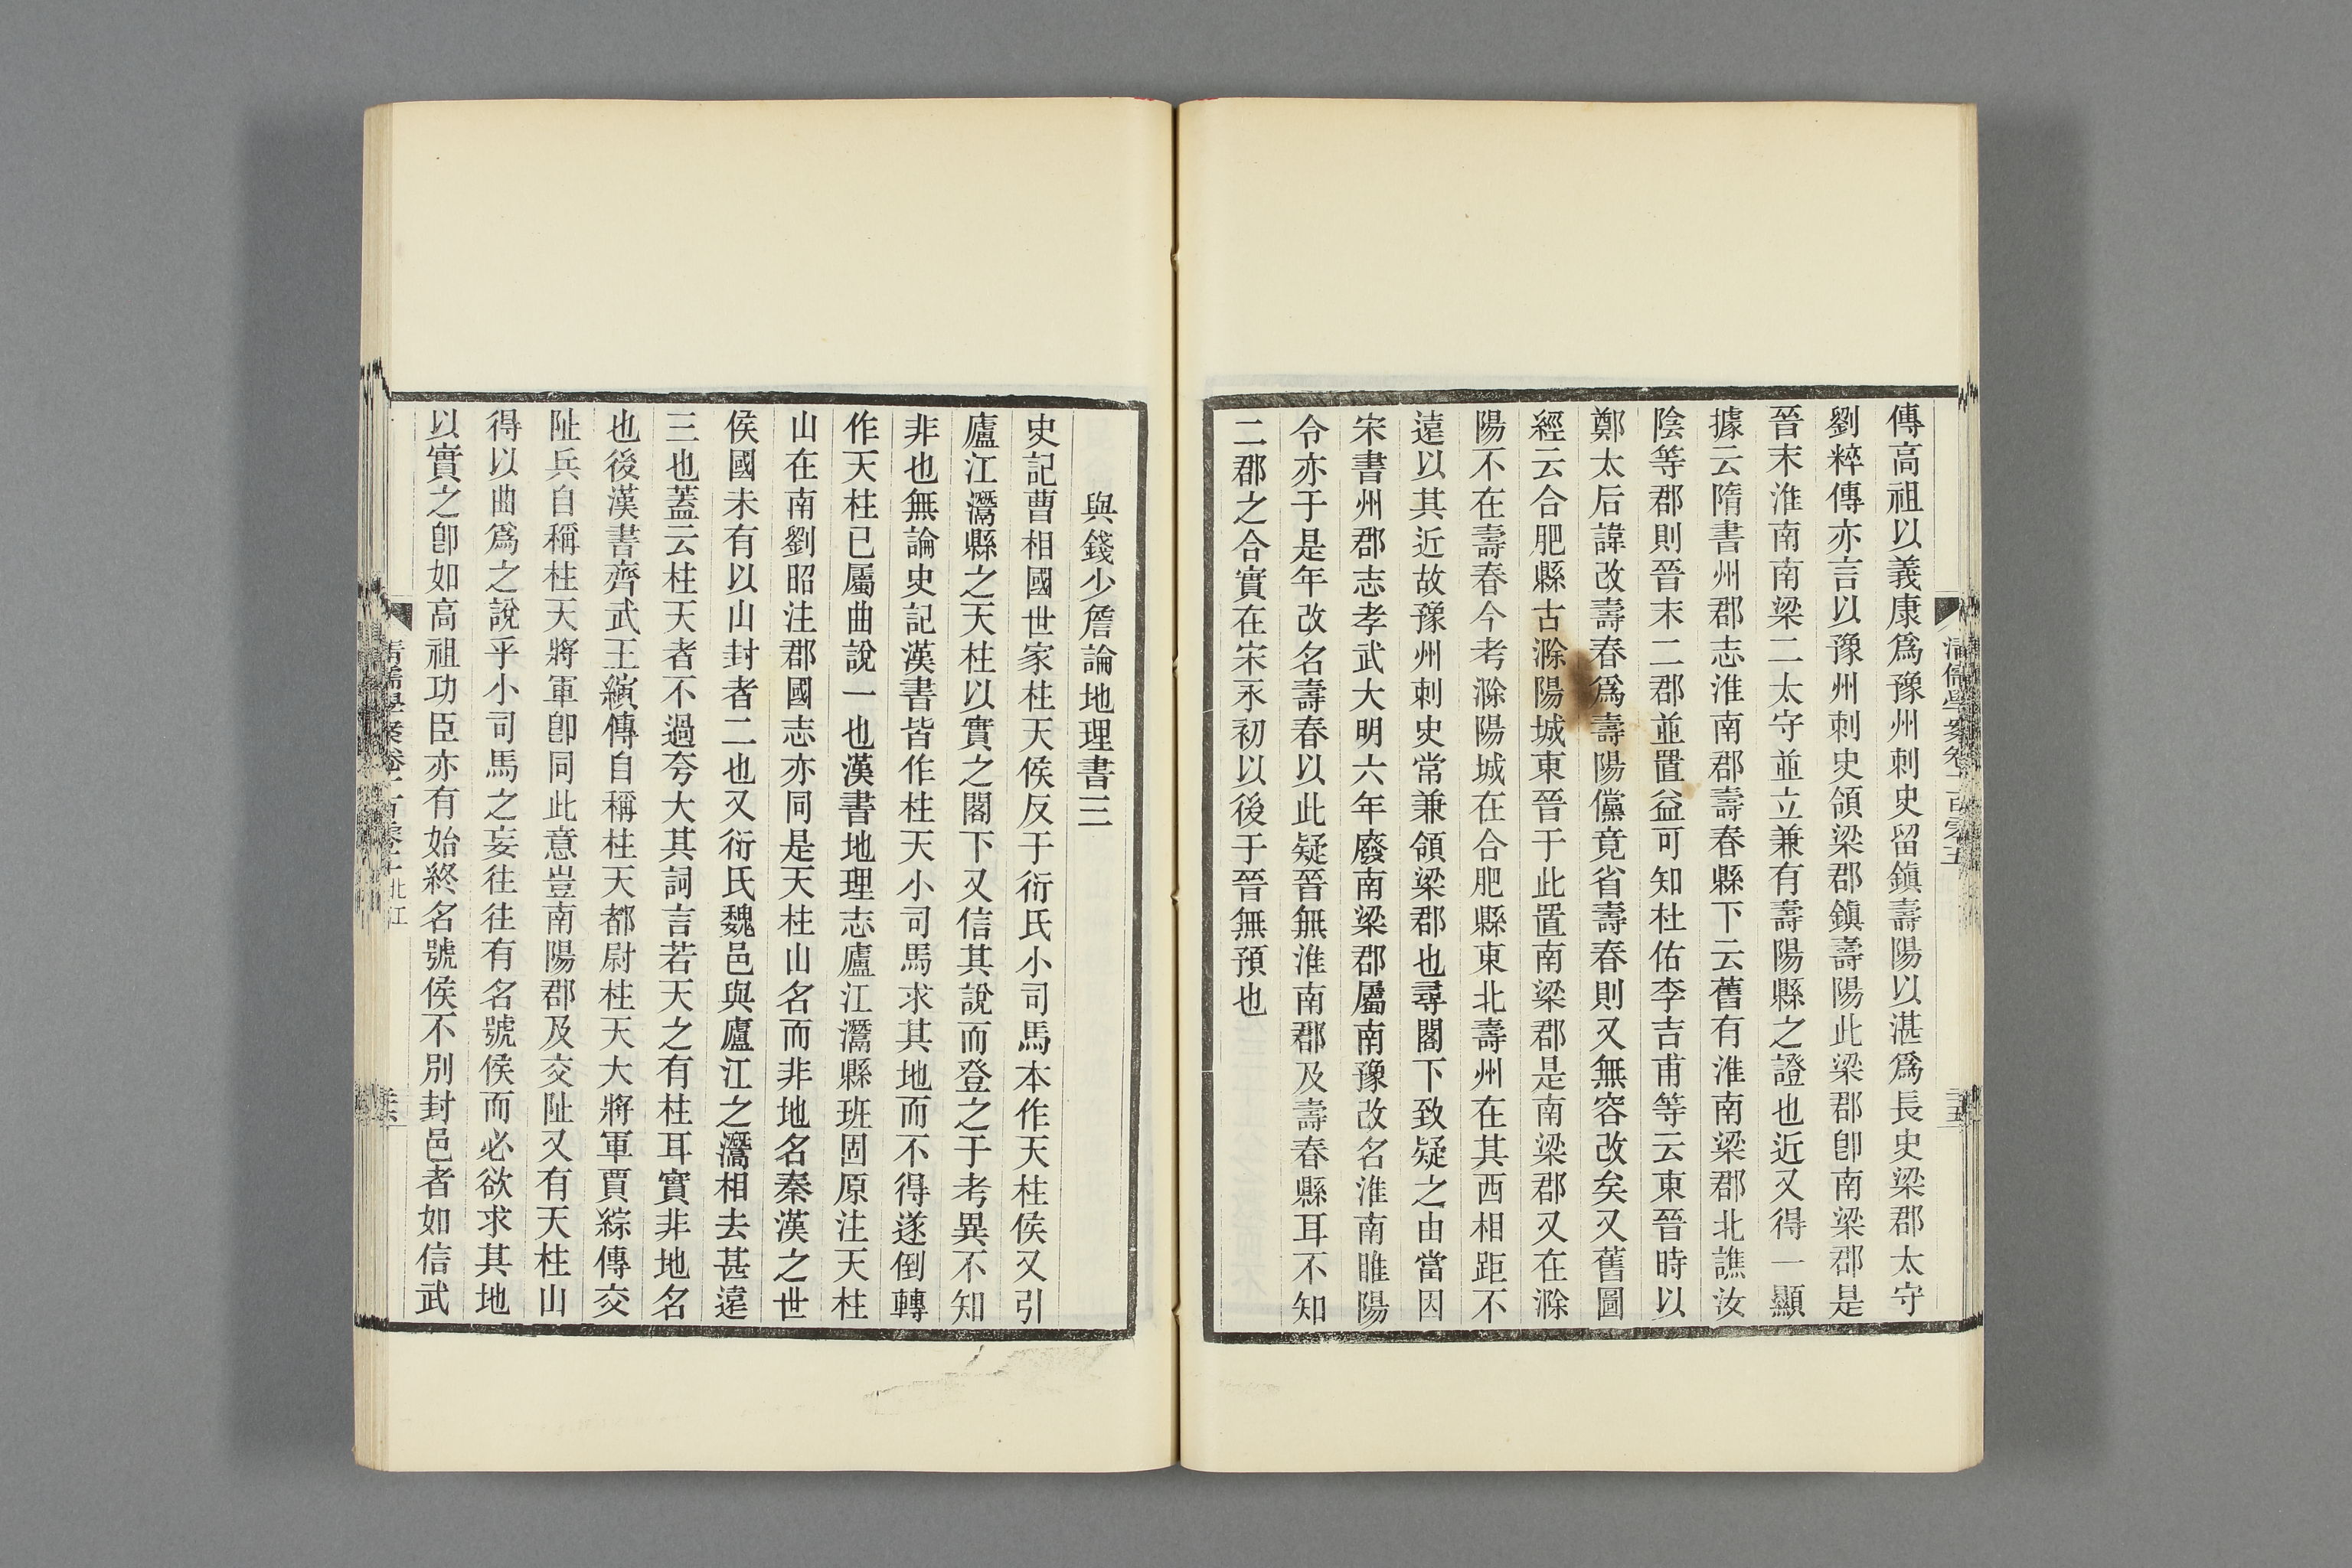 傳高祖以義康爲豫州刺史留鎭壽陽以湛爲長史梁郡太守
劉粹傳亦言以豫州刺史領梁郡鎭壽陽此梁郡卽南梁郡是
晉末淮南南梁二太守並立兼有壽陽縣之證也近又得一顯
據云隋書州郡志淮南郡壽春縣下云舊有淮南梁郡北譙汝
陰等郡則晉末二郡並置益可知杜佑李吉甫等云東晉時以
鄭太后諱改壽春爲壽陽儻竟省壽春則又無容改矣又舊圖
經云合肥縣古滁陽城東晉于此置南梁郡是南梁郡又在滁
陽不在壽春今考滁陽城在合肥縣東北壽州在其西相距不
遠以其近故豫州刺史常兼領梁郡也尋閣下致疑之由當因
宋書州郡志孝武大明六年廢南梁郡屬南豫改名淮南睢陽
令亦于是年改名壽春以此疑晉無淮南郡及壽春縣耳不知
二郡之合實在宋永初以後于晉無預也
清儒學案卷一百零五
三五
與錢少詹論地理書三
史記曹相國世家柱天侯反于衍氏小司馬本作天柱侯又引
廬江灊縣之天柱以實之閣下又信其說而登之于考異不知
非也無論史記漢書皆作柱天小司馬求其地而不得遂倒轉
作天柱已屬曲說一也漢書地理志廬江灊縣班固原注天柱
山在南劉昭注郡國志亦同是天柱山名而非地名秦漢之世
侯國未有以山封者二也又衍氏魏邑與廬江之灊相去甚遠
三也蓋云柱天者不過夸大其詞言若天之有柱耳實非地名
也後漢書齊武王縯傳自稱柱天都尉柱天大將軍賈綜傳交
阯兵自稱柱天將軍卽同此意豈南陽郡及交阯又有天柱山
得以曲爲之說乎小司馬之妄往往有名號侯而必欲求其地
以實之卽如高祖功臣亦有始終名號侯不別封邑者如信武
清儒學案卷一百零五 北江